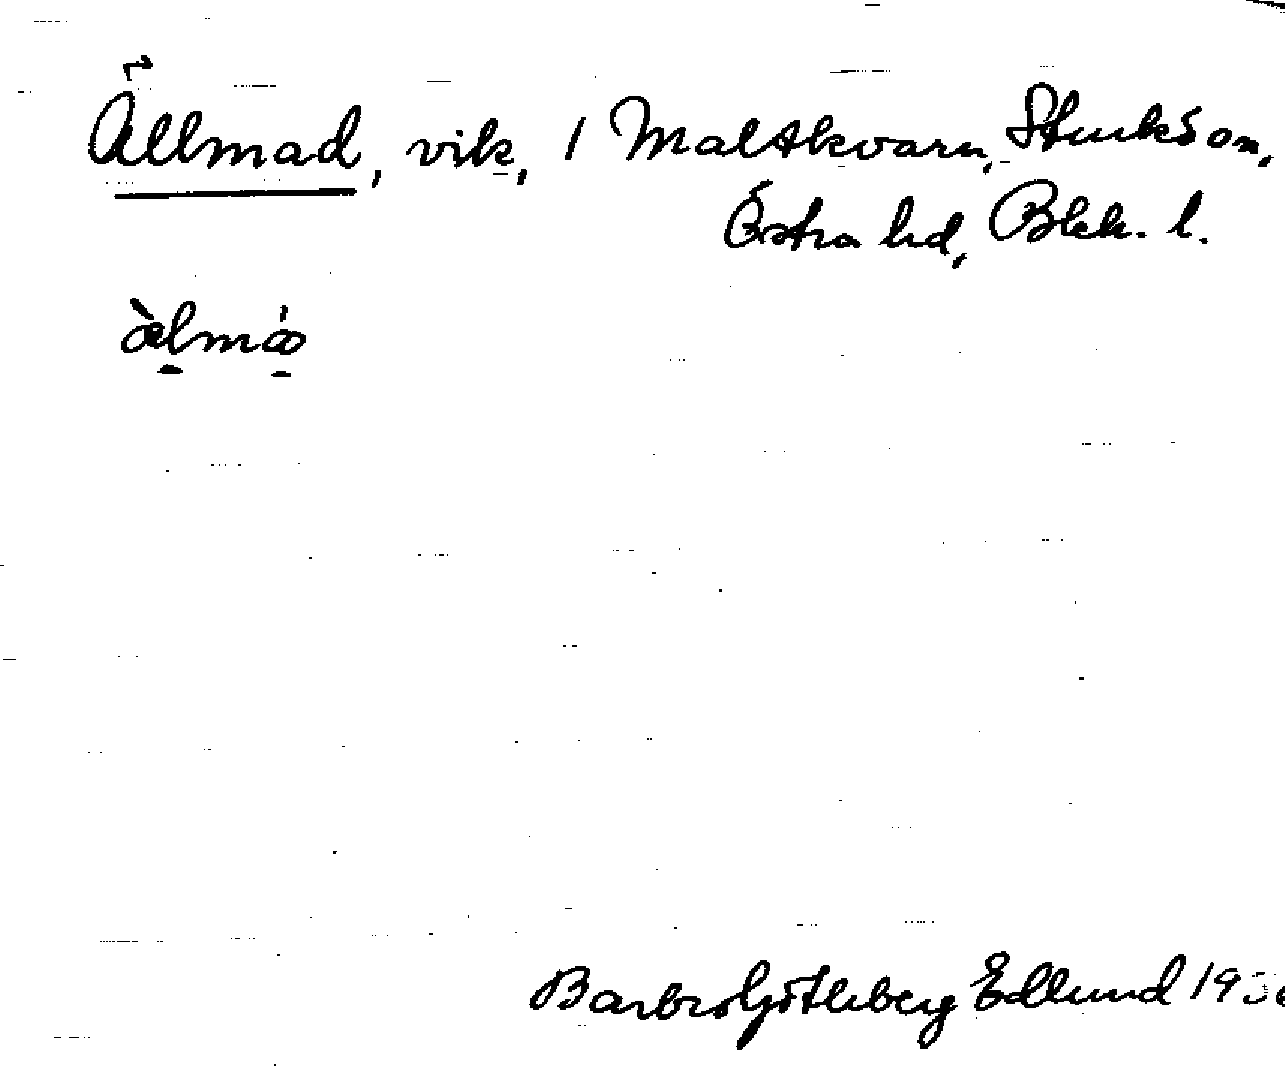 Ällmad, vik, 1 Maltkvarn, Sturkö sn,
Östra hd, Blek. l.
Barbro Götleberg Edlund